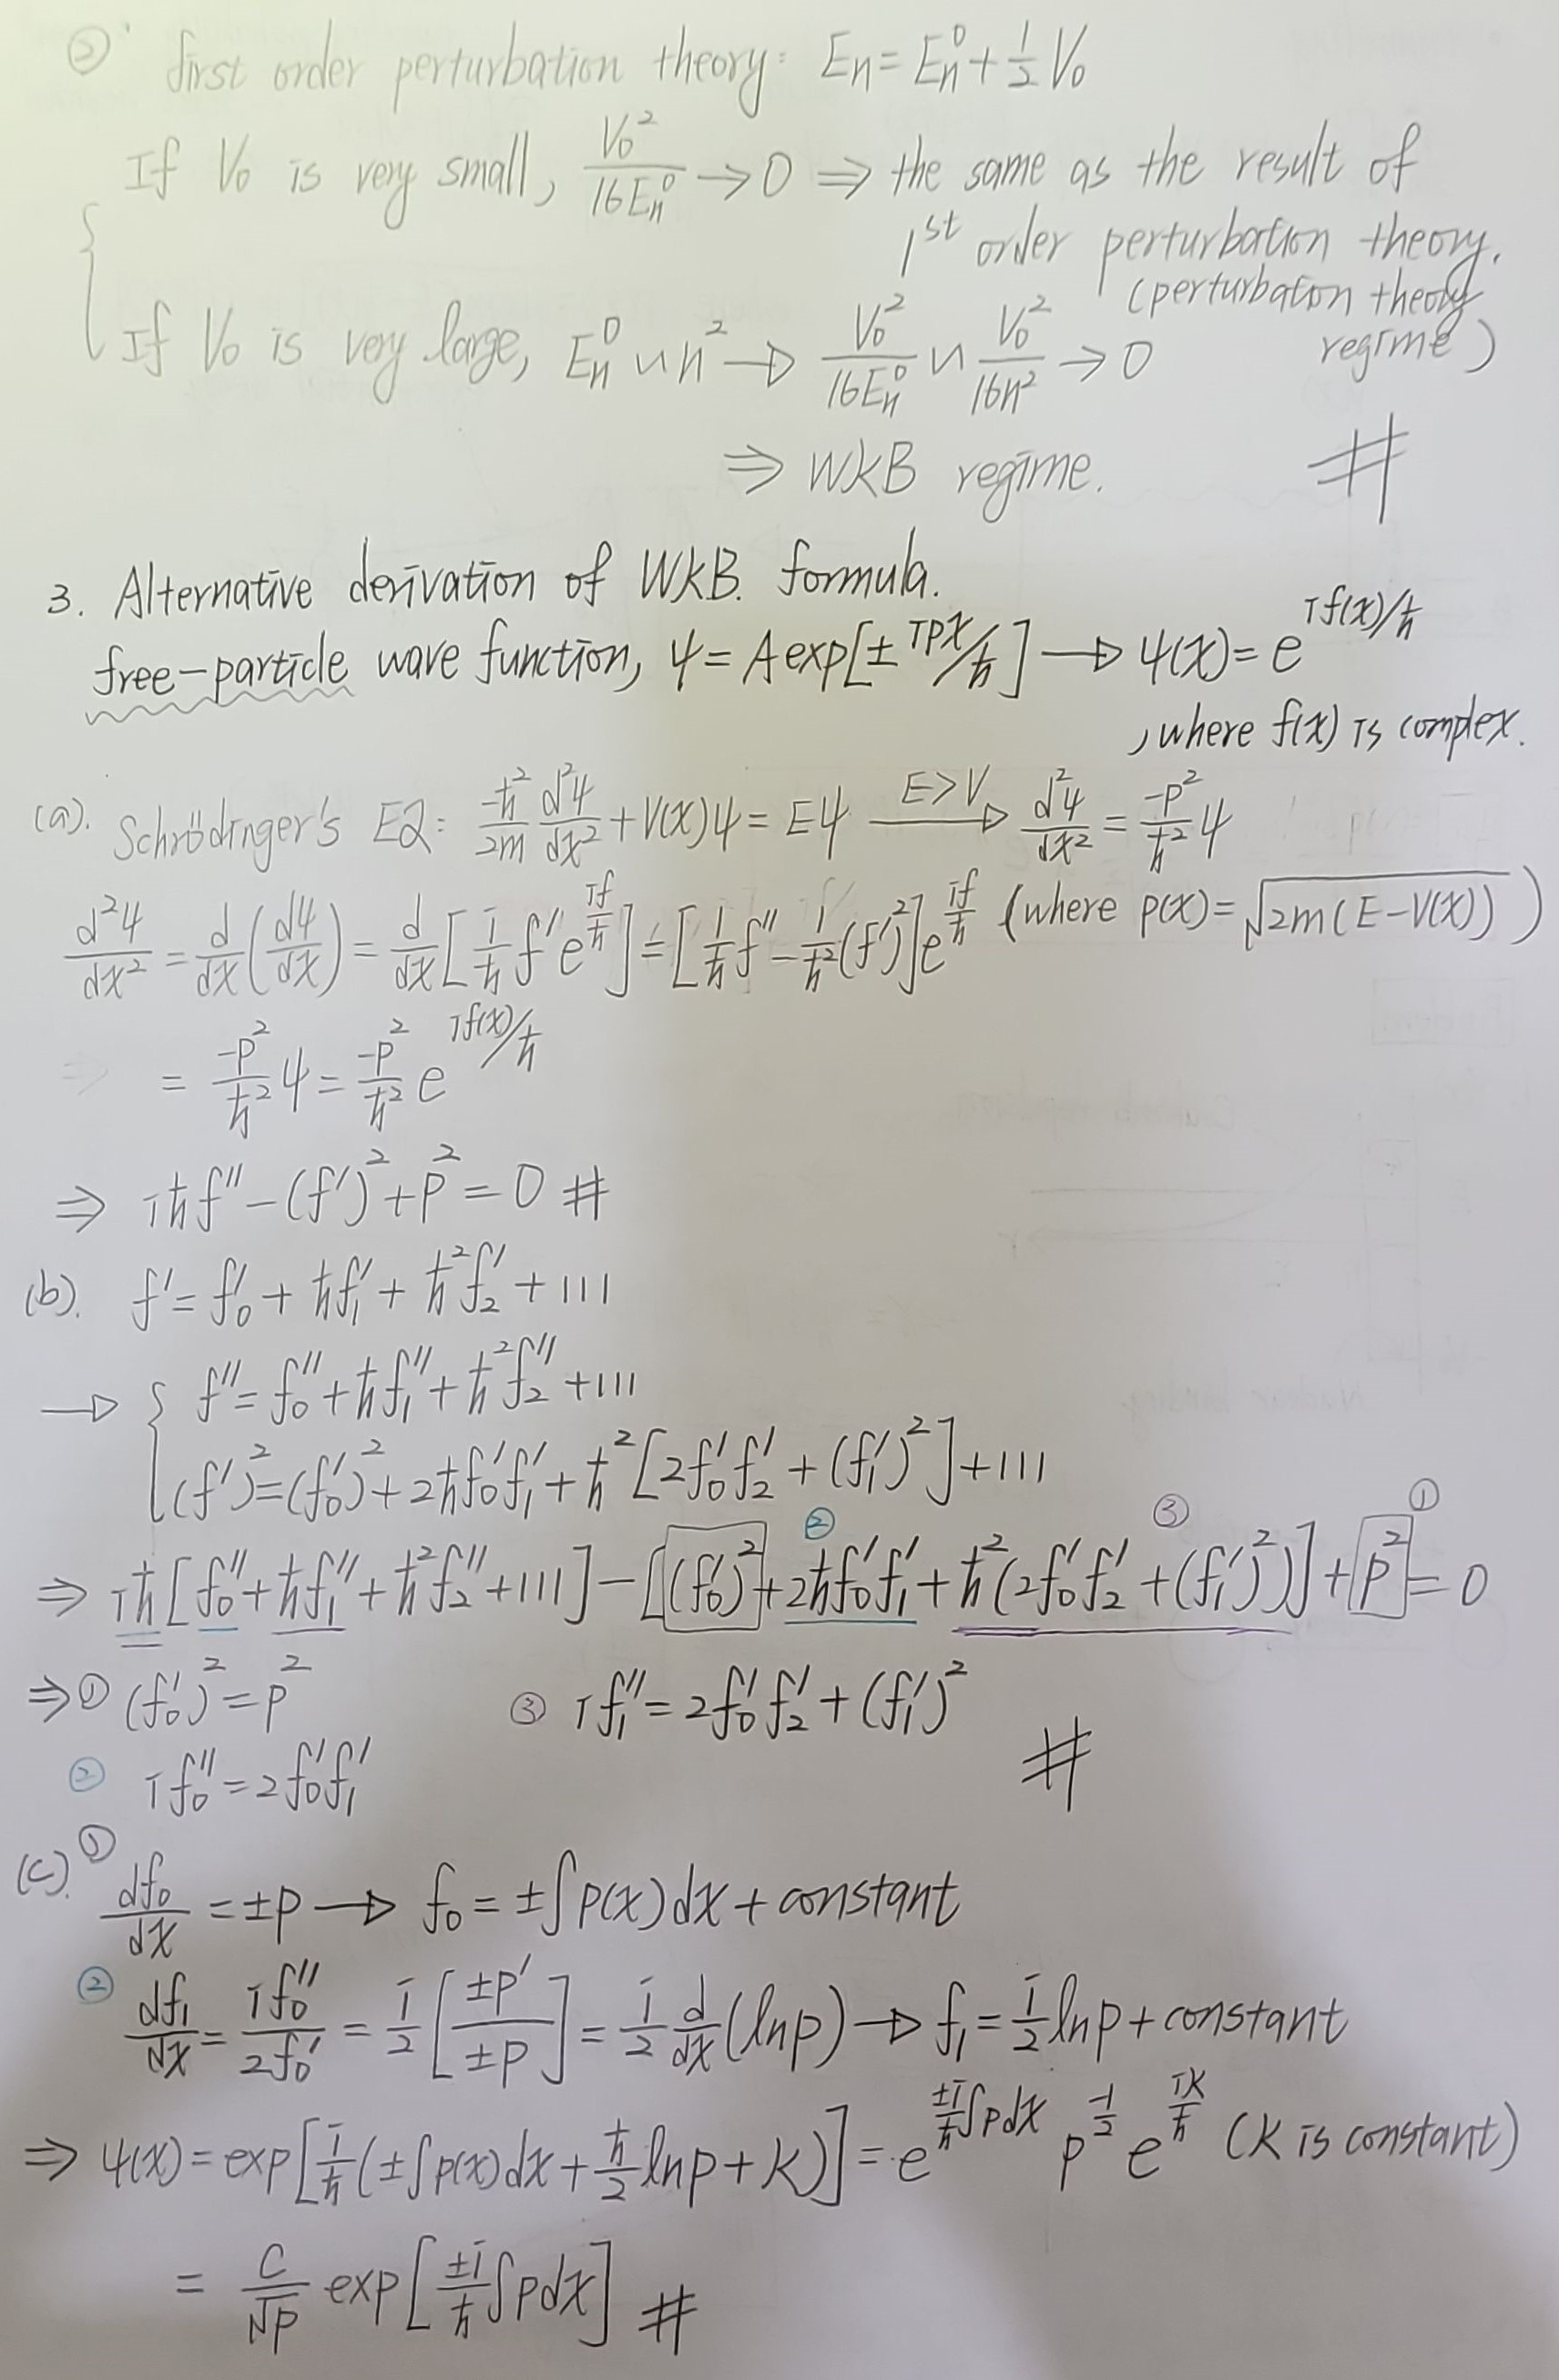 ② first order perturbation theory: En = En⁰ + 1/2 V₀
If V₀ is very small, V₀²/16En⁰ → 0 ⇒ the same as the result of
1st order perturbation theory.
(perturbation theory
regime)
If V₀ is very large, En⁰ ∽ n² → V₀²/16En⁰ ∽ V₀²/16n² → 0
⇒ WKB regime. #
3. Alternative derivation of WKB. formula.
free-particle wave function, ψ = A exp[± ipx/ħ] → ψ(x) = e^{if(x)/ħ}
, where f(x) is complex.
(a). Schrödinger's EQ: -ħ²/2m d²ψ/dx² + V(x)ψ = Eψ —E>V→ d²ψ/dx² = -p²/ħ² ψ
d²ψ/dx² = d/dx (dψ/dx) = d/dx [i/ħ f' e^{if/ħ}] = [i/ħ f'' - 1/ħ² (f')²] e^{if/ħ} (where p(x) = √2m(E-V(x)))
⇒ = -p²/ħ² ψ = -p²/ħ² e^{if(x)/ħ}
⇒ iħf'' - (f')² + p² = 0 #
(b). f' = f₀' + ħf₁' + ħ²f₂' + ...
→ { f'' = f₀'' + ħf₁'' + ħ²f₂'' + ...
(f')² = (f₀')² + 2ħf₀'f₁' + ħ²[2f₀'f₂' + (f₁')²] + ...
② ③ ①
⇒ iħ[f₀'' + ħf₁'' + ħ²f₂'' + ...] - [(f₀')² + 2ħf₀'f₁' + ħ²(2f₀'f₂' + (f₁')²)] + p² = 0
⇒ ① (f₀')² = p² ③ if₁'' = 2f₀'f₂' + (f₁')²
② if₀'' = 2f₀'f₁' #
(c). ① df₀/dx = ±p → f₀ = ±∫p(x)dx + constant
② df₁/dx = if₀''/2f₀' = i/2 [±p'/±p] = i/2 d/dx (lnp) → f₁ = i/2 lnp + constant
⇒ ψ(x) = exp[i/ħ (±∫p(x)dx + ħ/2 lnp + K)] = e^{±i/ħ ∫pdx} p^{-1/2} e^{iK/ħ} (K is constant)
= C/√p exp[±i/ħ ∫pdx] #